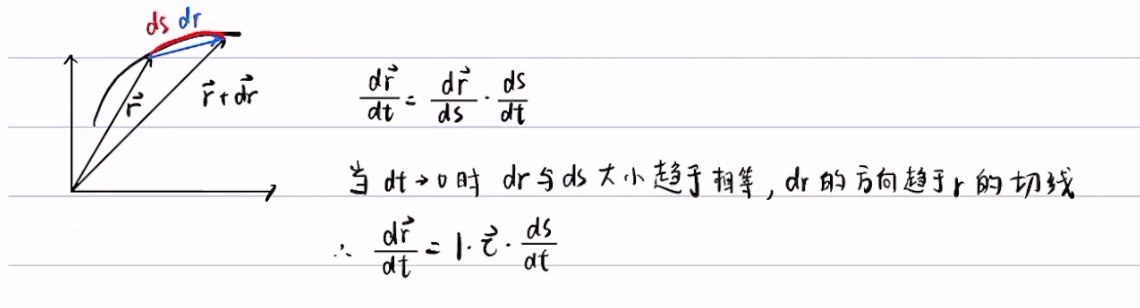 ds dr
r⃗ r⃗+dr⃗
dr⃗/dt = dr⃗/ds · ds/dt
当 dt→0 时 dr 与 ds 大小趋于相等，dr 的方向趋于 r 的切线
∴ dr⃗/dt = 1·τ⃗·ds/dt